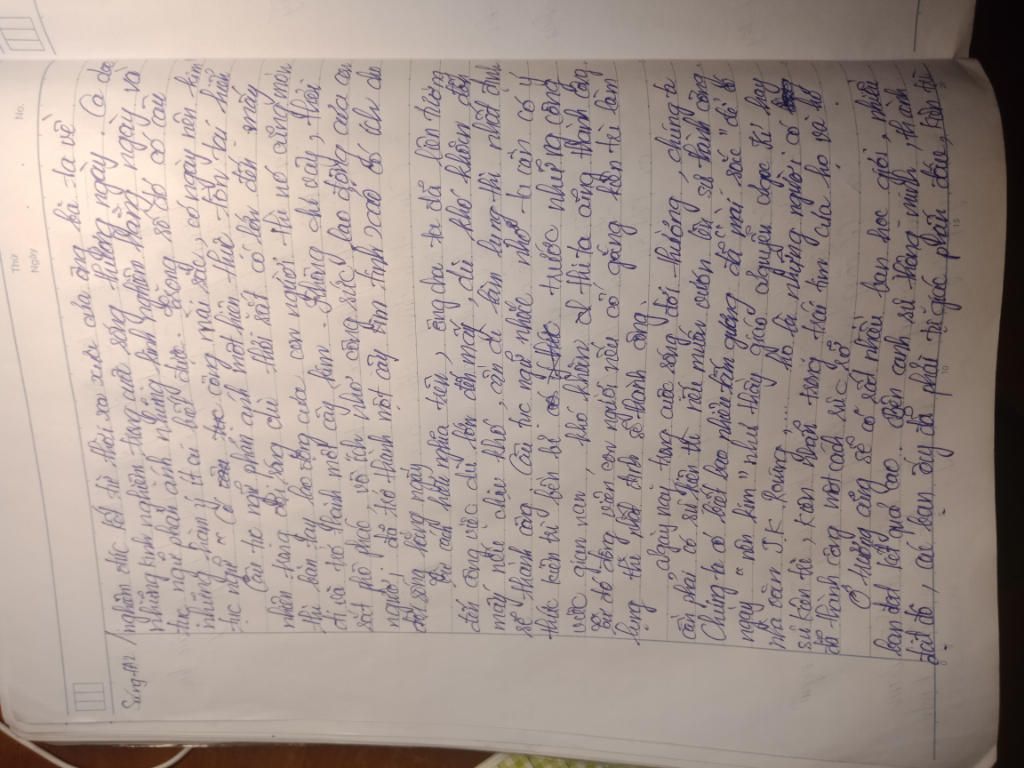 No.
Thứ
Ngày
Sáng tạo
nghiêm chúc kết từ thời xa xưa của ông bà ta về
những kinh nghiệm trong cuộc sống thường ngày. Ca dao
tục ngữ phản ánh những kinh nghiệm hằng ngày và
những hàm ý ít ai biết được. Trong số đó có câu
tục ngữ " Có công mài sắt, có ngày nên kim
Câu tục ngữ phản ánh một hiện thực tồn tại hiển
nhiên trong đời rằng dù thỏi sắt có lớn đến mấy
thì bàn tay lao động của con người thì nó cũng mòn
đi và trở thành một cây kim. Không chỉ vậy, thỏi
sắt thô phác vô ích nhờ công sức lao động của con
người đã trở thành một cây kim tinh xảo có ích cho
đời sống hằng ngày
Từ cách hiểu nghĩa trên, ông cha ta đã liên tưởng
đến công việc dù lớn đến mấy, dù khó khăn đến
mấy nếu chịu khó, cần cù làm lụng thì nhất định
sẽ thành công. Câu tục ngữ nhắc nhở ta cần có ý
thức kiên trì bền bỉ trước những công
việc gian nan, khó khăn thì ta cũng thành công.
Từ đó động viên con người nếu cố gắng kiên trì làm
lụng thì nhất định sẽ thành công
Ngày nay trong cuộc sống đời thường, chúng ta
cần phải có sự kiên trì nếu muốn vươn tới sự thành công
Chúng ta có biết bao nhiêu tấm gương đã mài sắc "để có
ngày " nên kim" như thầy giáo Nguyễn Ngọc Kí hay
nhà văn J.K. Rowling Họ là những người có
sự kiên trì, kiên nhẫn trong trái tim của họ và họ
đã thành công một cách sực rỡ
Ở trường cũng sẽ có rất nhiều bạn học giỏi, nhiều
bạn đạt kết quả cao. Bên cạnh sự thông minh, thành
đạt đó, các bạn ấy đã phải tự giác phấn đấu, kiên trì